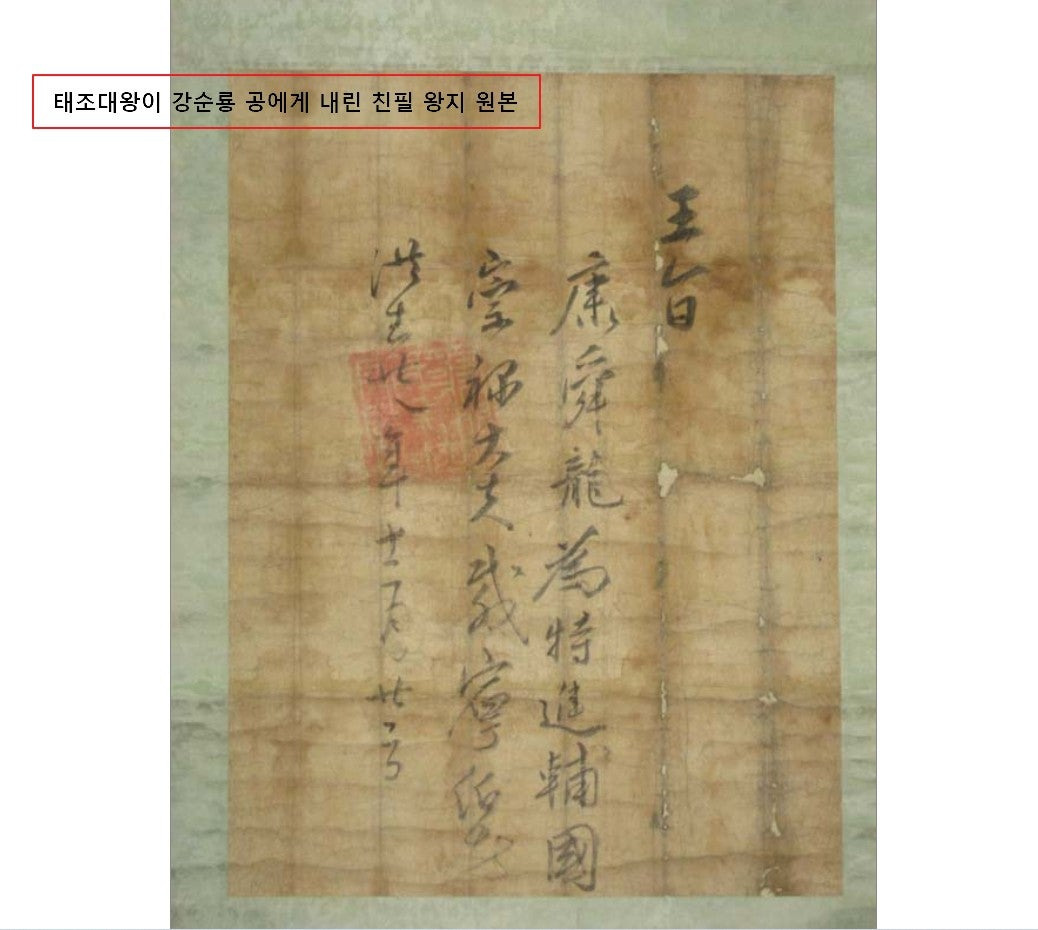 태조대왕이 강순룡 공에게 내린 친필 왕지 원본
王旨
康舜龍為特進輔國
崇祿大夫載寧伯者
洪武廿八年十二月廿二日